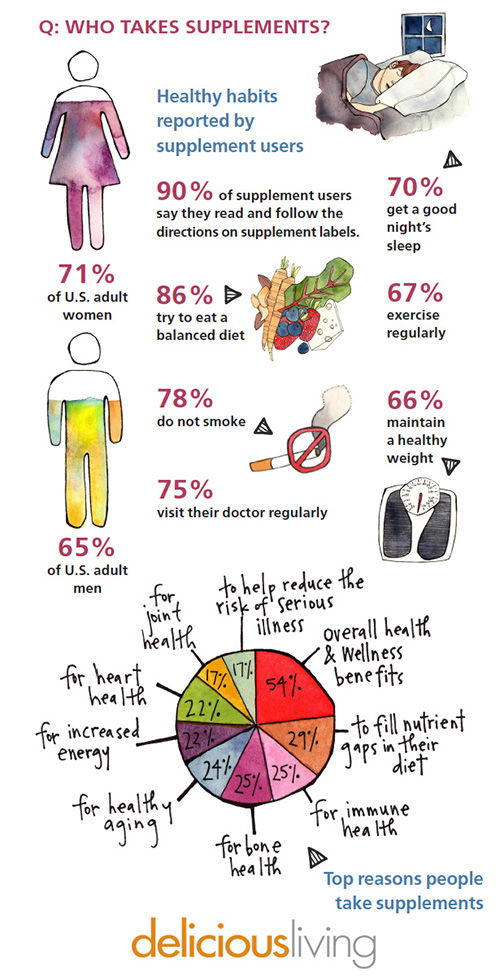 Q: WHO TAKES SUPPLEMENTS?
Healthy habits
reported by
supplement users
71%
of U.S. adult
women
65%
of U.S. adult
men
90% of supplement users
say they read and follow the
directions on supplement labels.
86%
try to eat a
balanced diet
78%
do not smoke
75%
visit their doctor regularly
70%
get a good
night's
sleep
67%
exercise
regularly
66%
maintain
a healthy
weight
to help reduce the
risk of serious
illness
17%
overall health
& wellness
benefits
54%
to fill nutrient
gaps in their
diet
29%
for immune
health
25%
for bone
health
25%
for healthy
aging
24%
for increased
energy
for heart
health
22%
for joint
health
17%
Top reasons people
take supplements
deliciousliving